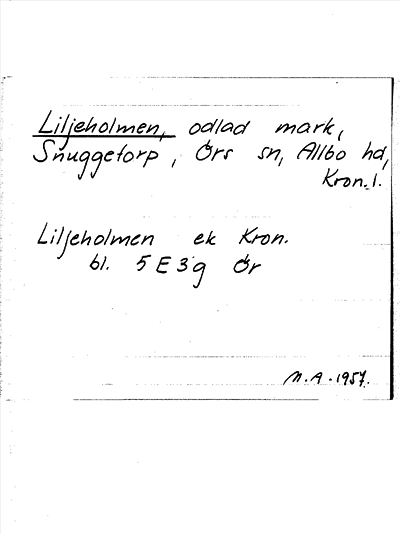 Liljeholmen, odlad mark,
Snuggetorp, Örs sn, Allbo hd,
Kron. l.
Liljeholmen ek Kron.
bl. 5 E 3 g Ör
M.A. 1957.